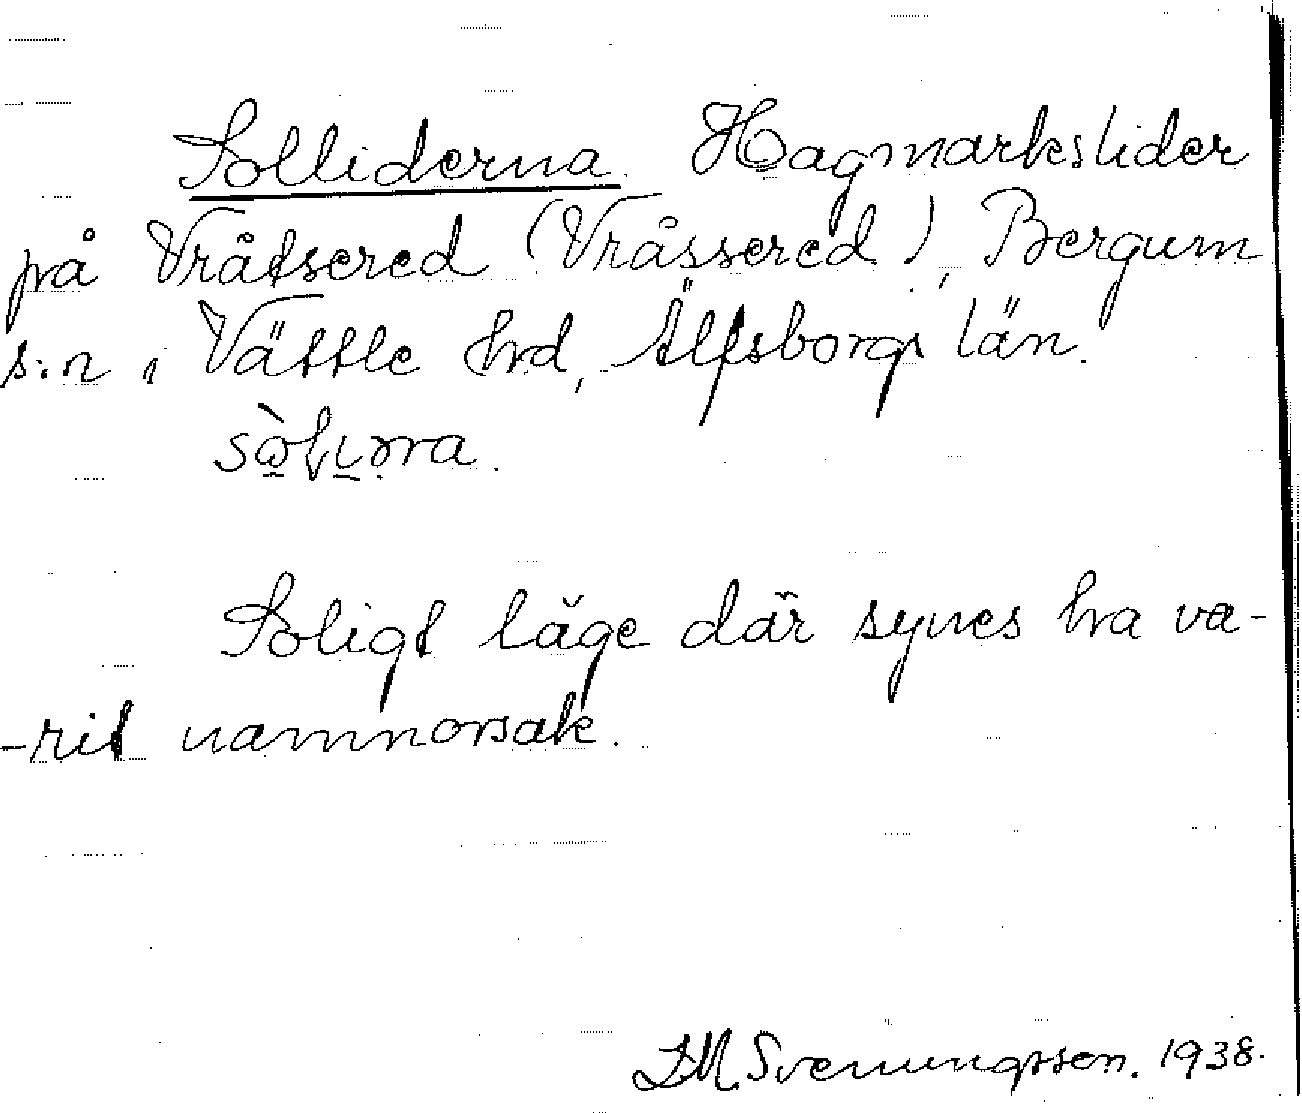 Solliderna. Hagmarkslider
på Vråtsered (Vråssered), Bergum
s:n i Vättle hrd, Älfsborgs län.
Soligt läge där synes ha va-
-rit namnorsak.
Svenungsson. 1938.